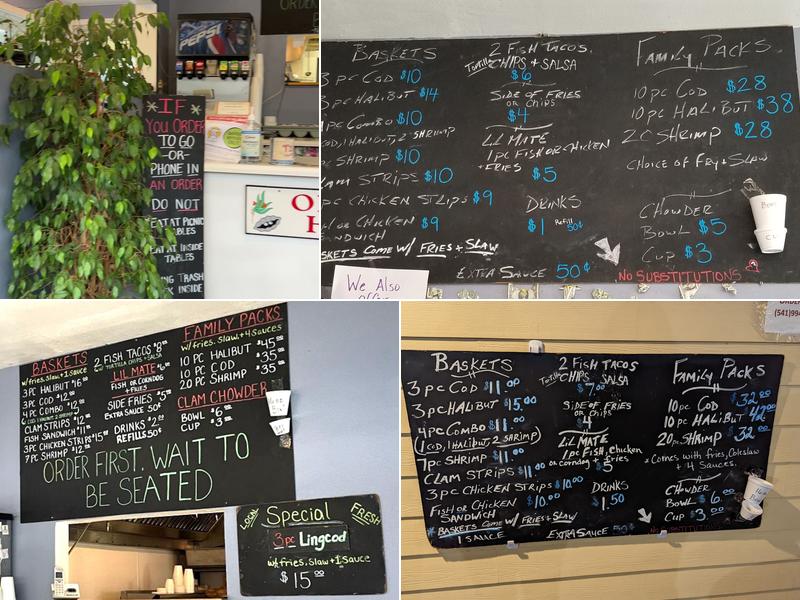 PEPSI
*IF*
YOU ORDER
TO GO
-OR-
PHONE IN
AN ORDER
DO NOT
EAT AT PICNIC
TABLES
EAT AT INSIDE
TABLES
TRASH
INSIDE
BASKETS
3 PC COD $10
3 PC HALIBUT $14
COMBO $10
COD, 1 HALIBUT, 2 SHRIMP
PC SHRIMP $10
CLAM STRIPS $10
PC CHICKEN STRIPS $9
OR CHICKEN $9
SANDWICH
BASKETS COME W/ FRIES + SLAW
We Also
2 FISH TACOS.
Tortilla CHIPS + SALSA
$6
SIDE OF FRIES
OR CHIPS
$4
LIL MATE
1 PC FISH OR CHICKEN
+ FRIES $5
DRINKS
$1 Refill 50¢
EXTRA SAUCE 50¢
FAMILY PACKS
10 PC COD $28
10 PC HALIBUT $38
20 SHRIMP $28
CHOICE OF FRY + SLAW
CHOWDER
BOWL $5
CUP $3
NO SUBSTITUTIONS
BASKETS
w/fries, slaw + 1 sauce
3 PC HALIBUT $16.00
3 PC COD $12.00
4 PC COMBO $12.00
CLAM STRIPS $12.00
FISH SANDWICH $11.00
3 PC CHICKEN STRIPS $15.00
7 PC SHRIMP $12.00
2 FISH TACOS $8.00
W/ TORTILLA CHIPS + SALSA
LIL MATE $6.00
FISH OR CORNDOG
+ FRIES
SIDE FRIES $5.00
EXTRA SAUCE 50¢
DRINKS $2.00
REFILLS 50¢
FAMILY PACKS
w/fries, slaw + 4 sauces
10 PC HALIBUT $45.00
10 PC COD $35.00
20 PC SHRIMP $35.00
CLAM CHOWDER
BOWL $6.00
CUP $3.00
ORDER FIRST. WAIT TO
BE SEATED
LOCAL Special FRESH
3pc Lingcod
w/fries, slaw + 1 sauce
$15.00
(541)994
BASKETS
3 pc COD $11.00
3 pc HALIBUT $15.00
4 pc COMBO $11.00
(1 COD, 1 HALIBUT, 2 SHRIMP)
7 pc SHRIMP $11.00
CLAM STRIPS $11.00
3 pc CHICKEN STRIPS $10.00
FISH OR CHICKEN $10.00
SANDWICH
*BASKETS COME W/ FRIES + SLAW
1 SAUCE
2 FISH TACOS
Tortilla CHIPS SALSA
$7.00
SIDE OF FRIES
OR CHIPS
$4
LIL MATE
1 PC FISH, chicken
or corndog + fries
$5
DRINKS
$1.50
EXTRA SAUCE 50¢
FAMILY PACKS
10 pc COD $32.00
10 pc HALIBUT $42.00
20 pc SHRIMP $32.00
*Comes with fries, Coleslaw
+ 4 Sauces.
CHOWDER
BOWL $6.00
CUP $3.00